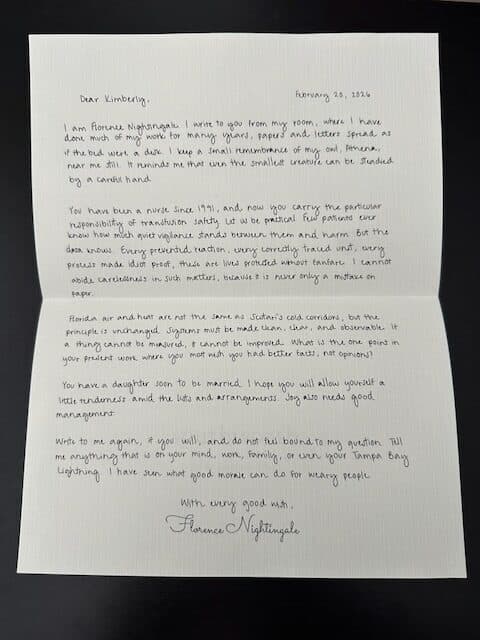 Dear Kimberly,
February 23, 2026
I am Florence Nightingale. I write to you from my room, where I have
done much of my work for many years, papers and letters spread as
if the bed were a desk. I keep a small remembrance of my owl, Athena,
near me still. It reminds me that even the smallest creature can be steadied
by a careful hand.
You have been a nurse since 1991, and now you carry the particular
responsibility of transfusion safety. Let us be practical. Few patients ever
know how much quiet vigilance stands between them and harm. But the
data knows. Every prevented reaction, every correctly traced unit, every
process made idiot proof, these are lives protected without fanfare. I cannot
abide carelessness in such matters, because it is never only a mistake on
paper.
Florida air and heat are not the same as Scutari's cold corridors, but the
principle is unchanged. Systems must be made clean, clear, and observable. If
a thing cannot be measured, it cannot be improved. What is the one point in
your present work where you most wish you had better facts, not opinions?
You have a daughter soon to be married. I hope you will allow yourself a
little tenderness amid the lists and arrangements. Joy also needs good
management.
Write to me again, if you will, and do not feel bound to my question. Tell
me anything that is on your mind, work, family, or even your Tampa Bay
Lightning. I have seen what good morale can do for weary people.
With every good wish,
Florence Nightingale